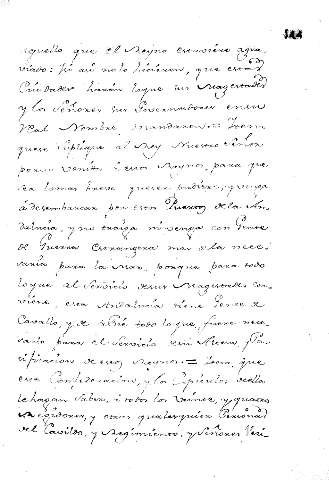 aquello que el Reyno estuviere agra
viado: si asi no lo hicieren, que estas
Ciudades haran lo que sus Magestades
y los Señores sus Governadores en su
Real Nombre mandaron = Item
que se suplique al Rey Nuestro Señor
por su venida à estos Reynos, para que
sea la mas breve que sea
à desembarcar por estos Puertos de la An
dalucia, y no traiga ni venga con Gente
de Guerra Estrangera mas de la nece
saria para la Mar, porque para todo
lo que al Servicio de sus Magestades con
viene, esta Andalucia tiene Gente de
Cavallo, y de à Pié todo lo que fuere nece
sario para el Servicio Pa
cificacion de estos Reynos = Item, que
esta Confederacion, y los Capitulos de ella
se hagan saber à todos los Veinte, y quatro
Regidores, y otras qualesquier Personas
del Cavildo, y Regimiento, y Señores Veci